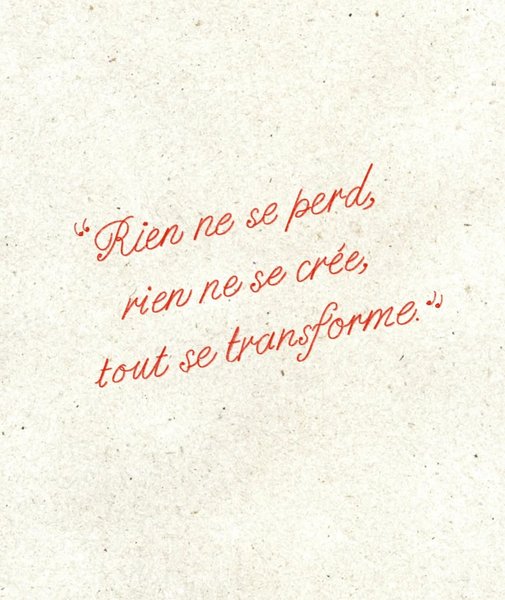 “Rien ne se perd,
rien ne se crée,
tout se transforme.”